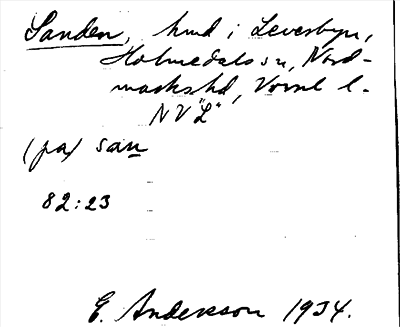 Sanden, hmd i Leverbyn,
Holmedals sn, Nord-
markshd, Värml l.
NV "L"
(på) san
82:23
E. Andersson 1934.